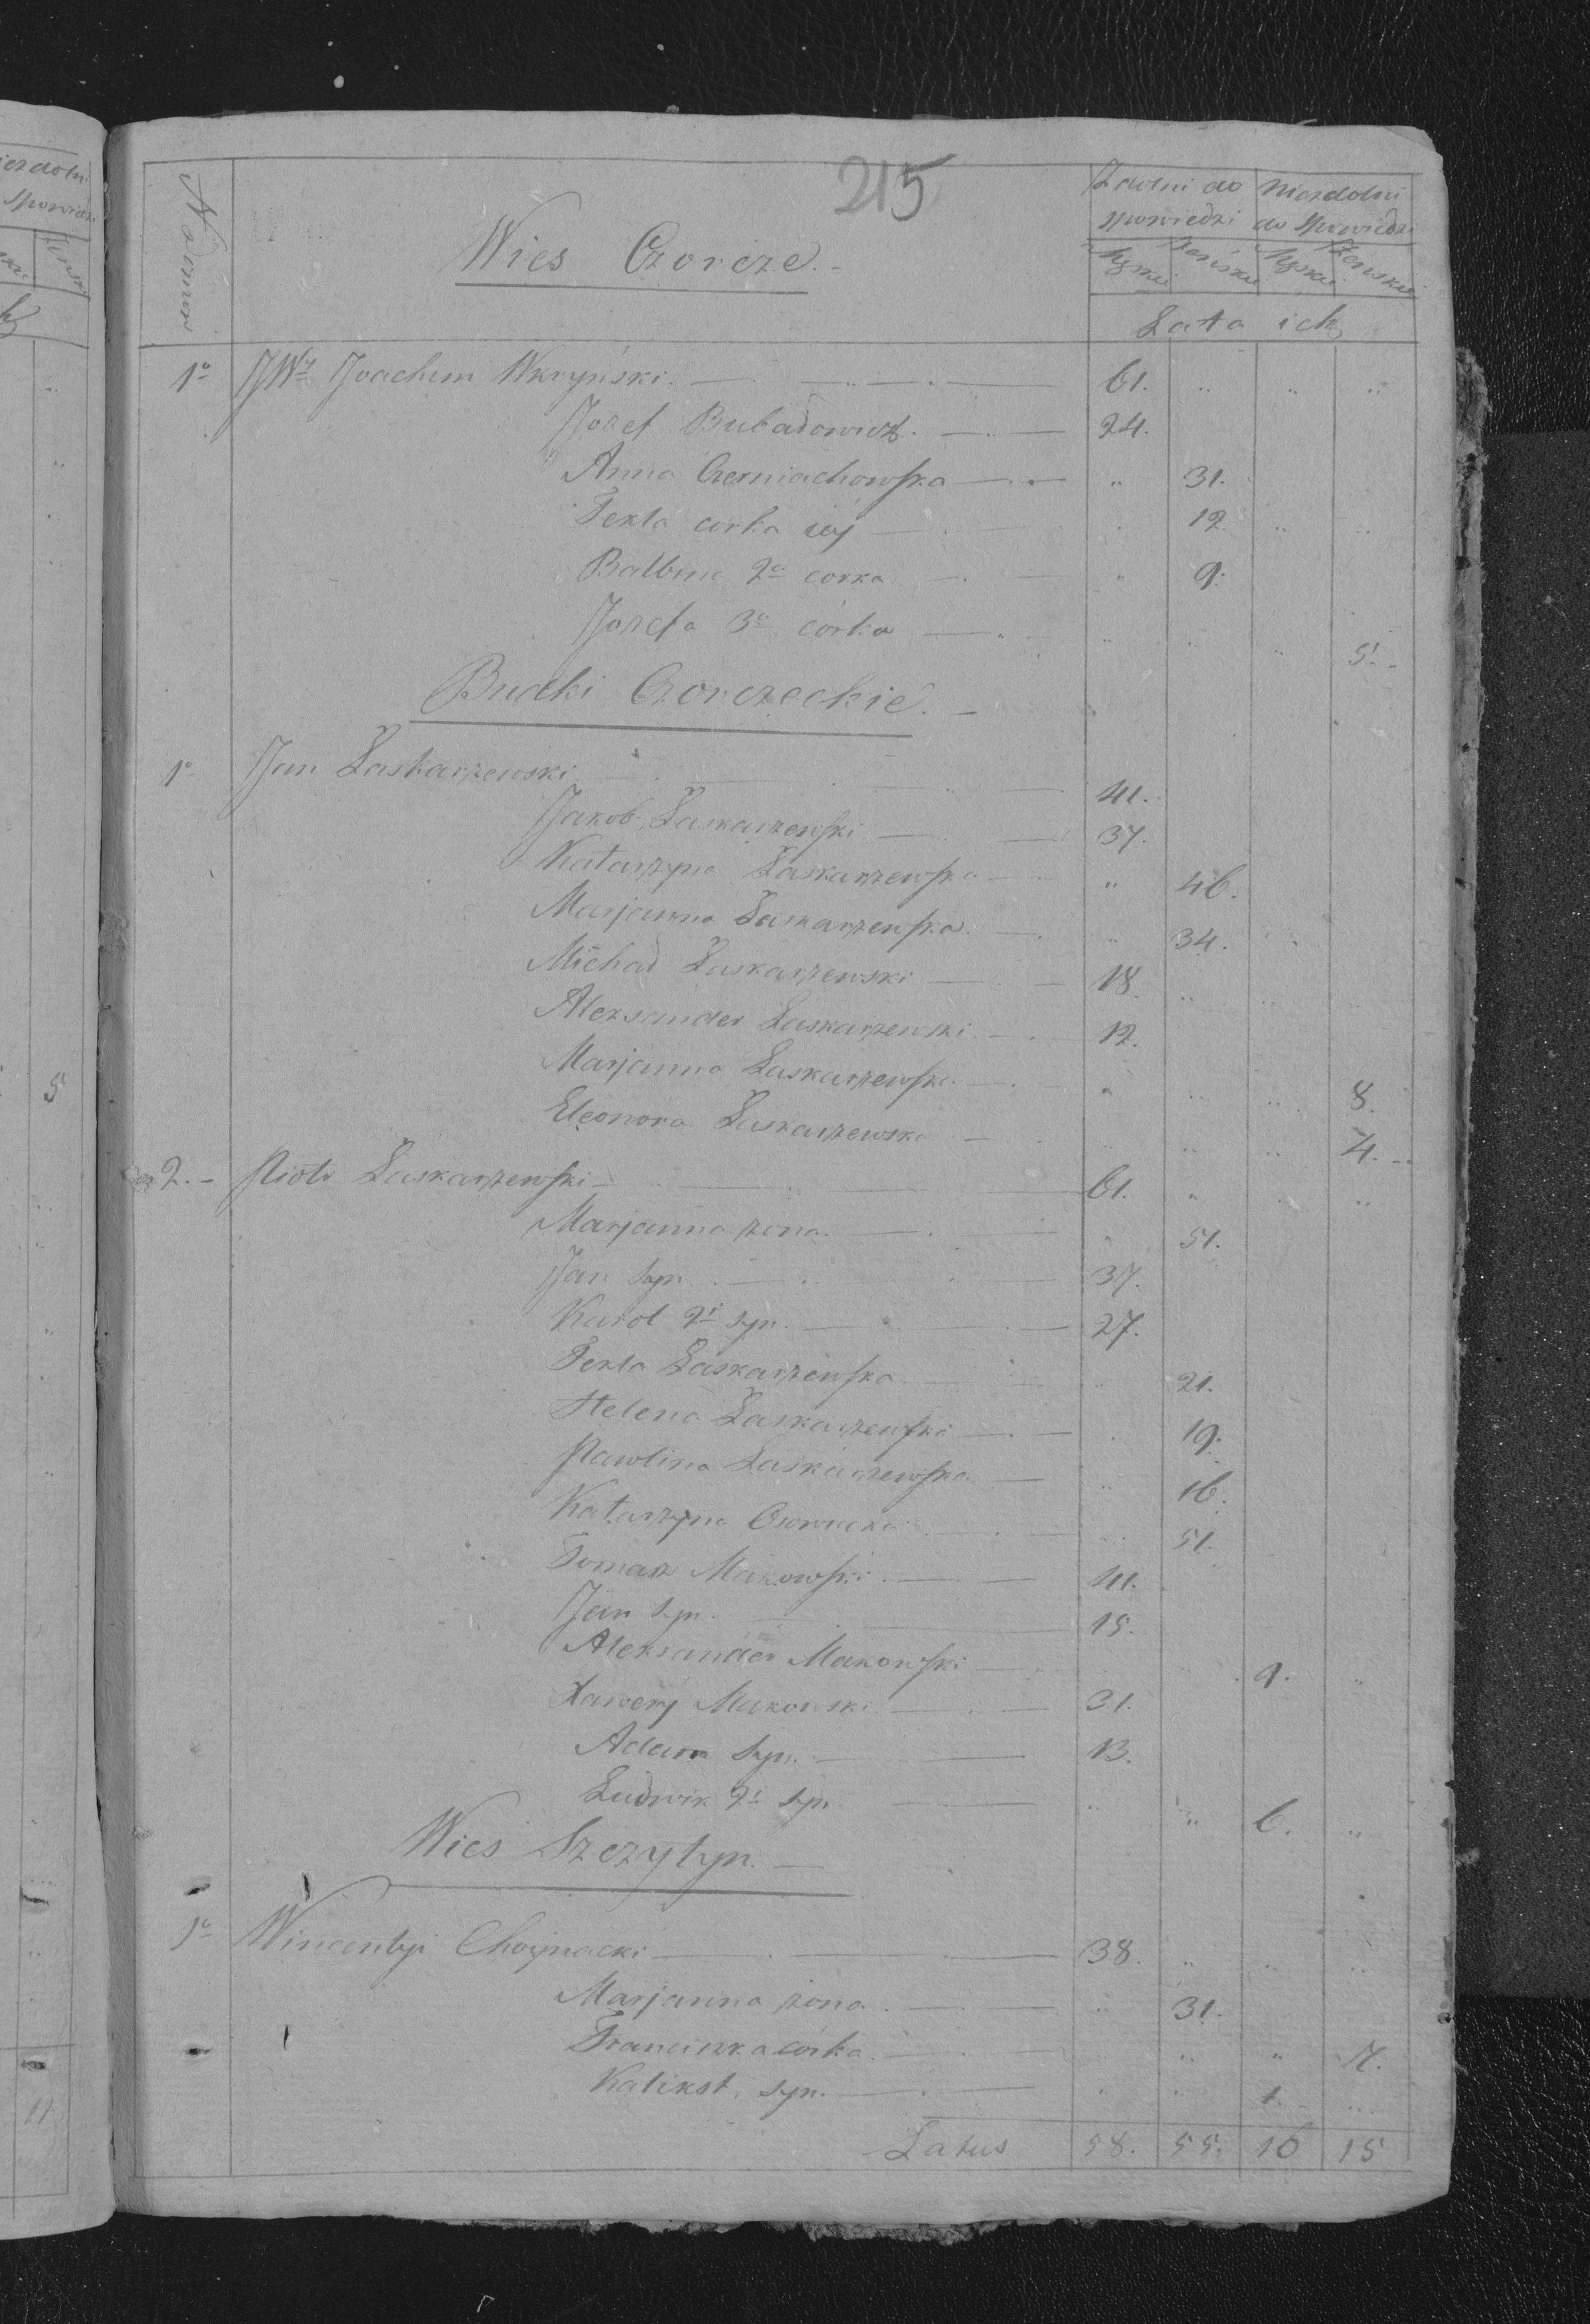 215
Numer
Zdolni do spowiedzi Niezdolni do Spowiedzi
Męskie Żeńskie Męskie Żeńskie
Lata ich
Wies Czorcze.
1o JWy Joachim Wkryński. 61. " " "
Jozef Bubadowicz. 24.
Anna Czerniachowska " 31.
Tekla corka iey 12. " "
Balbina 2a corka " 9.
Jozefa 3a córka " " " 5.
Budki Czorczeckie.
1o Jan Łaskarzewski 41.
Jakob Łaskarzewski 37.
Katarzyna Łaskarzewska " 46.
Marjanna Łaskarzewska. " 34.
Michał Łaskarzewski 18. " "
Alexsander Łaskarzewski. 12.
Marjanna Łaskarzewska " " " 8.
Eleonora Łaskarzewska " " " 4.
2. Piotr Łaskarzewski 61. " " "
Marjanna zona. " 51.
Jan Syn. 37.
Karol 2i syn. 27.
Tekla Łaskarzewska " 21.
Helena Łaskarzewski 19.
Pawlina Łaskarzewska " 16.
Katarzyna 51.
Tomasz Makowski. 41.
Jan Syn. 15.
Aleksander Makowski 9. "
Xawery Makowski 31.
Adam Syn. 13.
Ludwik 2i syn " " 6. "
Wies Szczytyn.
1o Wincentyi Choynacki 38. " " "
Marjanna zona. " 31.
Franciszka córka. " " 7.
Kalikst. syn. " " 1. "
Latus 58. 55. 16 15